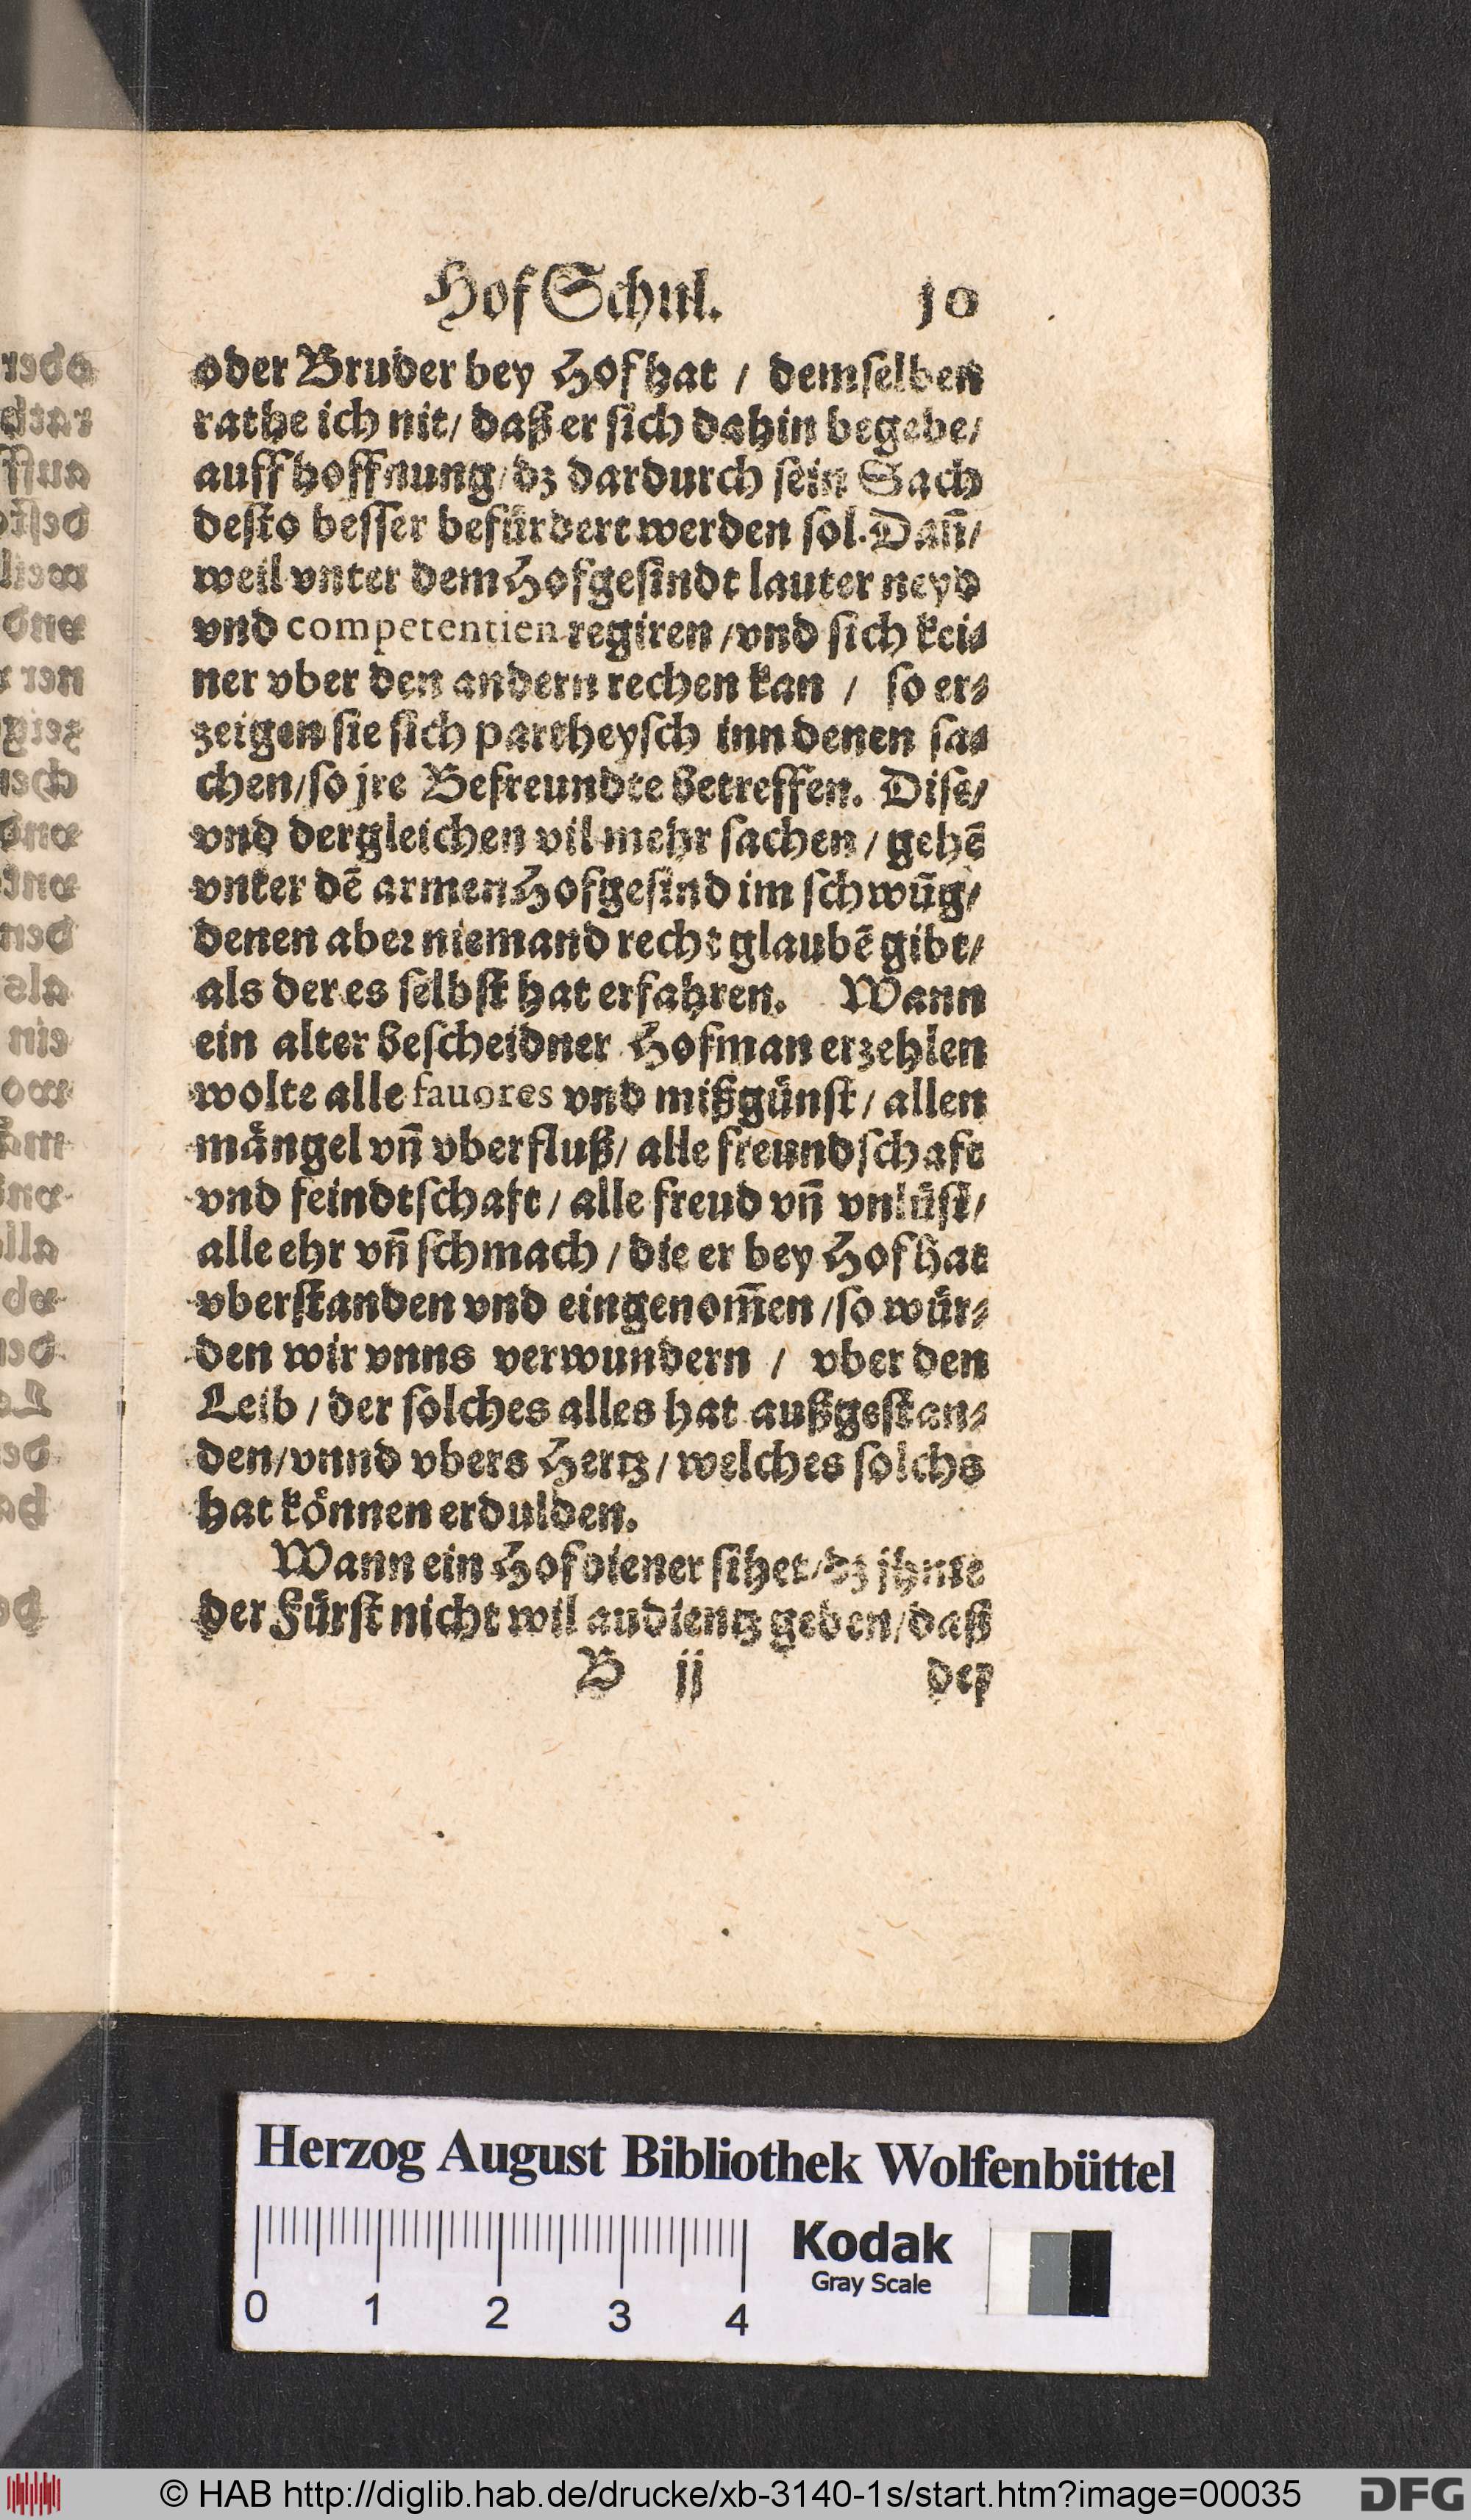 Hof Schul. 10
oder Bruder bey Hof hat / demſelben
rathe ich nit / daß er ſich dahin begebe /
auff hoffnung / dz dardurch ſein Sach
deſto beſſer befuͤrdert werden ſol. Dañ /
weil vnter dem Hofgeſindt lauter neyd
vnd competentien regiren / vnd ſich kei⸗
ner vber den andern rechen kan / ſo er⸗
zeigen ſie ſich partheyſch inn denen ſa⸗
chen / ſo jre Befreundte betreffen. Diſe /
vnd dergleichen vil mehr ſachen / gehẽ
vnter dẽ armen Hofgeſind im ſchwũg /
denen aber niemand recht glaubẽ gibt /
als der es ſelbſt hat erfahren. Wann
ein alter beſcheidner Hofman erzehlen
wolte alle fauores vnd mißguͤnſt / allen
maͤngel vñ vberfluß / alle freundſchaft
vnd feindtſchaft / alle freud vñ vnluͤſt /
alle ehr vñ ſchmach / die er bey Hof hat
vberſtanden vnd eingenom̃en / ſo wuͤr⸗
den wir vnns verwundern / vber den
Leib / der ſolches alles hat außgeſtan⸗
den / vnnd vbers Hertz / welches ſolchs
hat koͤnnen erdulden.
Wann ein Hofdiener ſihet / dz jhme
der Fuͤrſt nicht wil audientz geben / daß
B ij der
Herzog August Bibliothek Wolfenbüttel
Kodak
Gray Scale
0 1 2 3 4
© HAB http://diglib.hab.de/drucke/xb-3140-1s/start.htm?image=00035 DFG